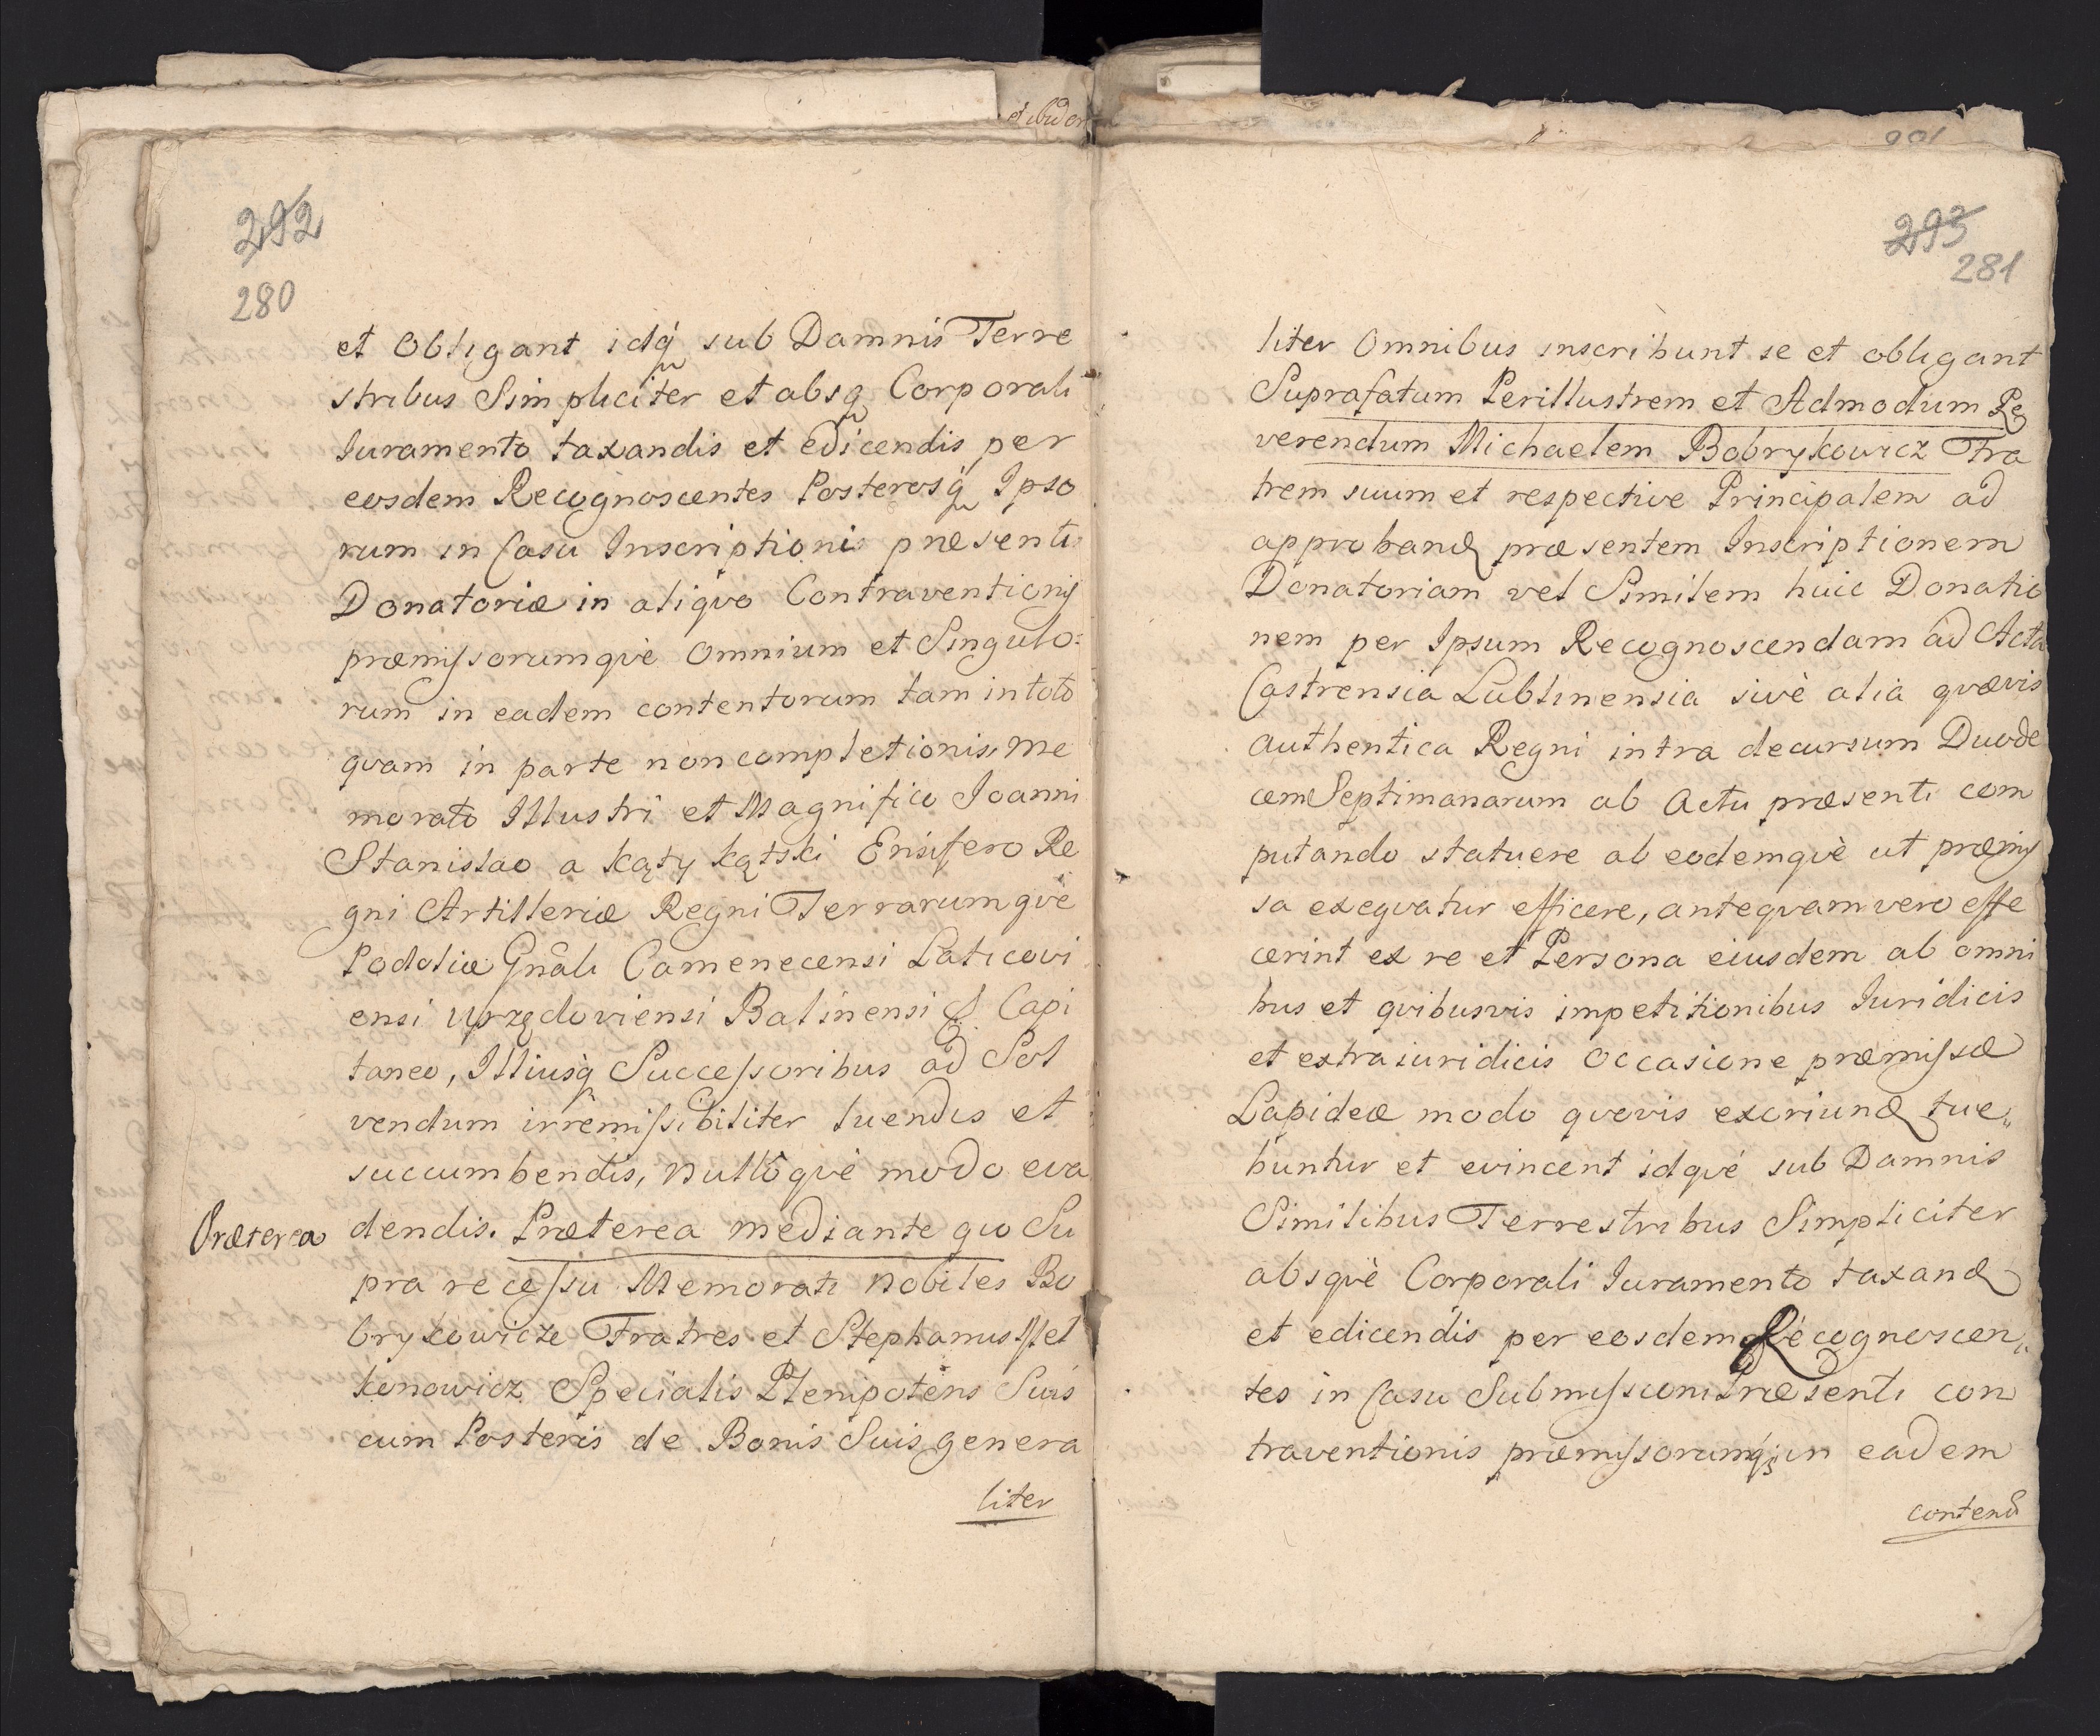 292
280
et Obligant idq́ sub Damnis Terre
stribus Simpliciter et absq Corporali
Iuramento taxandis et edicendis per
eosdem Recognoscentes Posterosq́ Ipso
rum in Casu Inscriptionis præsenti
Donatoriæ in aliqvo Contraventionis
præmissorumqvè Omnium et Singulo:
rum in eadem contentorum tam in toto
qvam in parte non completionis, Me
morato Illustri et Magnifico Joanni
Stanislao a Kąty Kątski Ensifero Re
gni Artilleriæ Regni Terrarumqvè
Podoliæ Gnãli Camenecensi Laticovi
ensi Vrzędoviensi Balinensi & Capi
taneo, Illiusq́ Successoribus ad Sol
vendum irremissibiliter luendis et
succumbendis, Nullôqvè modo eva
Præterea
dendis. Præterea mediante quo Su
pra recessu Memorati Nobiles Bo
brykowicze Fratres et Stephanus
konowicz Specialis Plenipotens Suis
cum Posteris de Bonis Suis genera
liter
901
293
281
liter Omnibus inscribunt se et obligant
Suprafatum Perillustrem et Admodum Re
verendum Michaelem Bobrykowicz Fra
trem suum et respective Principalem ad
approband præsentem Inscriptionem
Donatoriam vel Similem huic Donatio
nem per Ipsum Recognoscendam ad Acta
Castrensia Lublinensia sivè alia qvævis
authentica Regni intra decursum Duode
cem Septimanarum ab Actu præsenti com
putando statuere ab eodemqvè ut præmis
sa exeqvatur efficere, anteqvam vero effe
cerint ex re et Persona eiusdem ab omni
bus et qvibusvis impetitionibus Iuridicis
et extraiuridicis occasione præmissæ
Lapideæ modo qvovis exoriund tue„
buntur et evincent idqvé sub Damnis
Similibus Terrestribus Simpliciter
absqvè Corporali Iuramento taxand
et edicendis per eosdem Recognoscen„
tes in Casu Submissioni Præsenti con
traventionis præmissorumq́; in eadem
contend